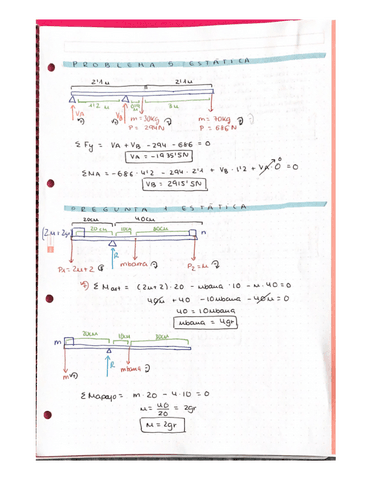 PROBLEMA 5 ESTÁTICA
2'1m 2'1m
1'2m 3m
VA VB m = 30kg m = 70kg
P = 294N P = 686N
ΣFy = VA + VB - 294 - 686 = 0
VA = -1935'5N
ΣMA = -686·4'2 - 294·2'1 + VB·1'2 + VA·0 = 0
VB = 2915'5N
PREGUNTA 1 ESTÁTICA
20cm 40cm
(2m+2gr) 20cm 10cm 30cm m
R
P1 = 2m+2 mbarra P2 = m
(2m+2)·20 - mbarra·10 - m·40 = 0
40m + 40 - 10mbarra - 40m = 0
40 = 10mbarra
mbarra = 4gr
20cm 10cm 30cm
m
R
m mbarra
ΣMapoyo = m·20 - 4·10 = 0
m = 40/20 = 2gr
m = 2gr